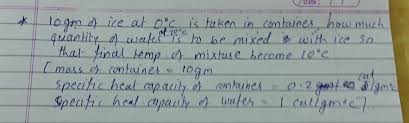 * 10gm of ice at 0°c is taken in container, how much
quantity of water at is to be mixed with ice so
that final temp of mixture become 10°c
[ mass of container = 10gm
specific heat capacity of container = 0.2 cal/gm°c
specific heat capacity of water = 1 cal/gm°c].